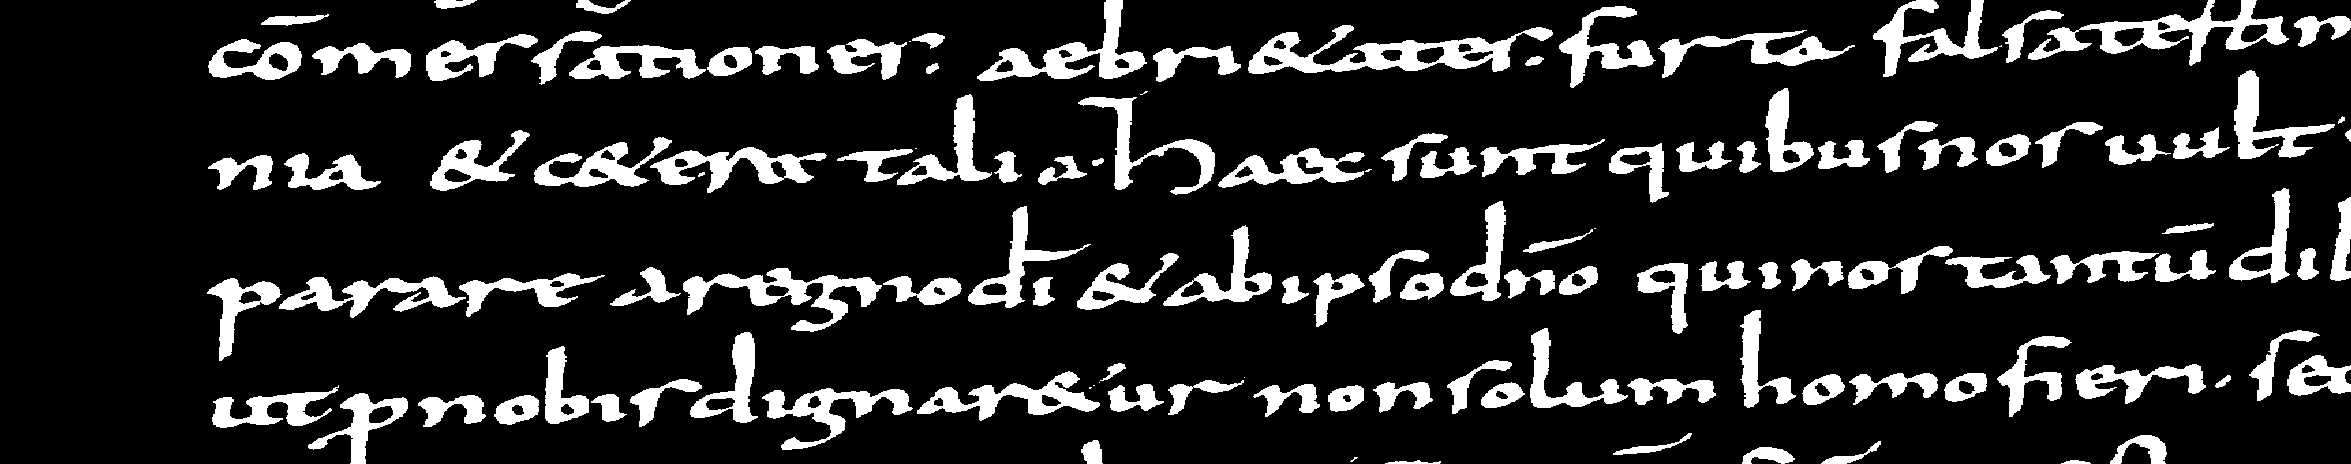 cōmessationes. aebri&ates. furta falsatestim
nia & c&era talia. Haec sunt quibus nos uult
parare a regno dī & ab ipso dn̄o qui nos tantū dil
ut ꝓ nobis dignar&ur non solum homo fieri. sed